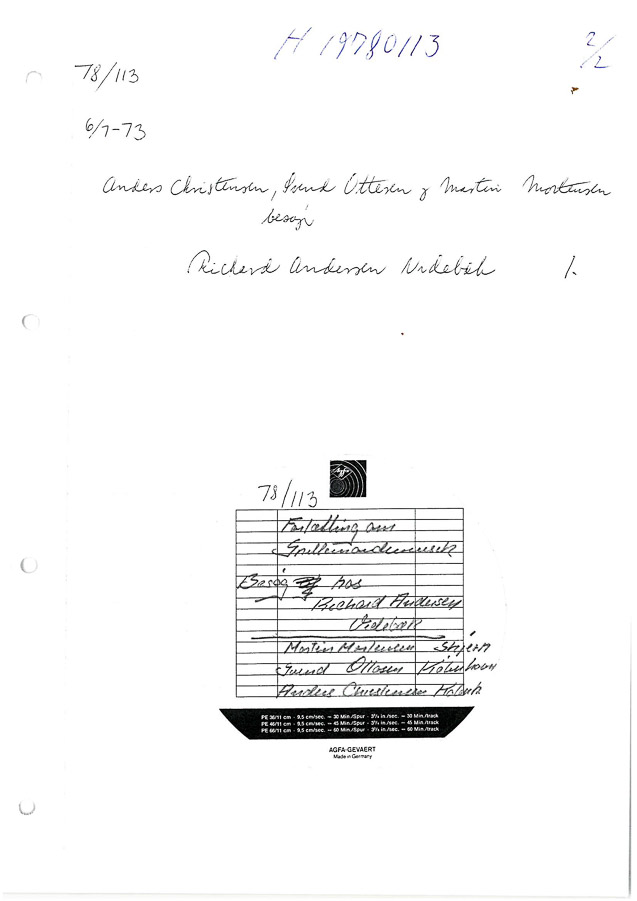 H 19780113
2/2
78/113
6/7-73
Anders Christensen, Svend Ottesen & Martin Mortensen
besøg
Richard Andersen Videbäk 1.
Agfa
78/113
Fortælling om
Spillemandsmusik
Besøg hos
Richard Andersen
Videbæk
Martin Mortensen Skjern
Svend Ottosen
Anders Christensen
PE 36/11 cm - 9,5 cm/sec. = 30 Min./Spur - 3³/₄ in./sec. = 30 Min./track
PE 46/11 cm - 9,5 cm/sec. = 45 Min./Spur - 3³/₄ in./sec. = 45 Min./track
PE 66/11 cm - 9,5 cm/sec. = 60 Min./Spur - 3³/₄ in./sec. = 60 Min./track
AGFA-GEVAERT
Made in Germany